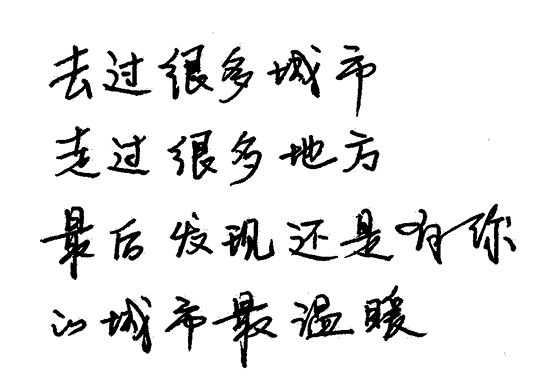 去过很多城市
走过很多地方
最后发现还是有你
的城市最温暖